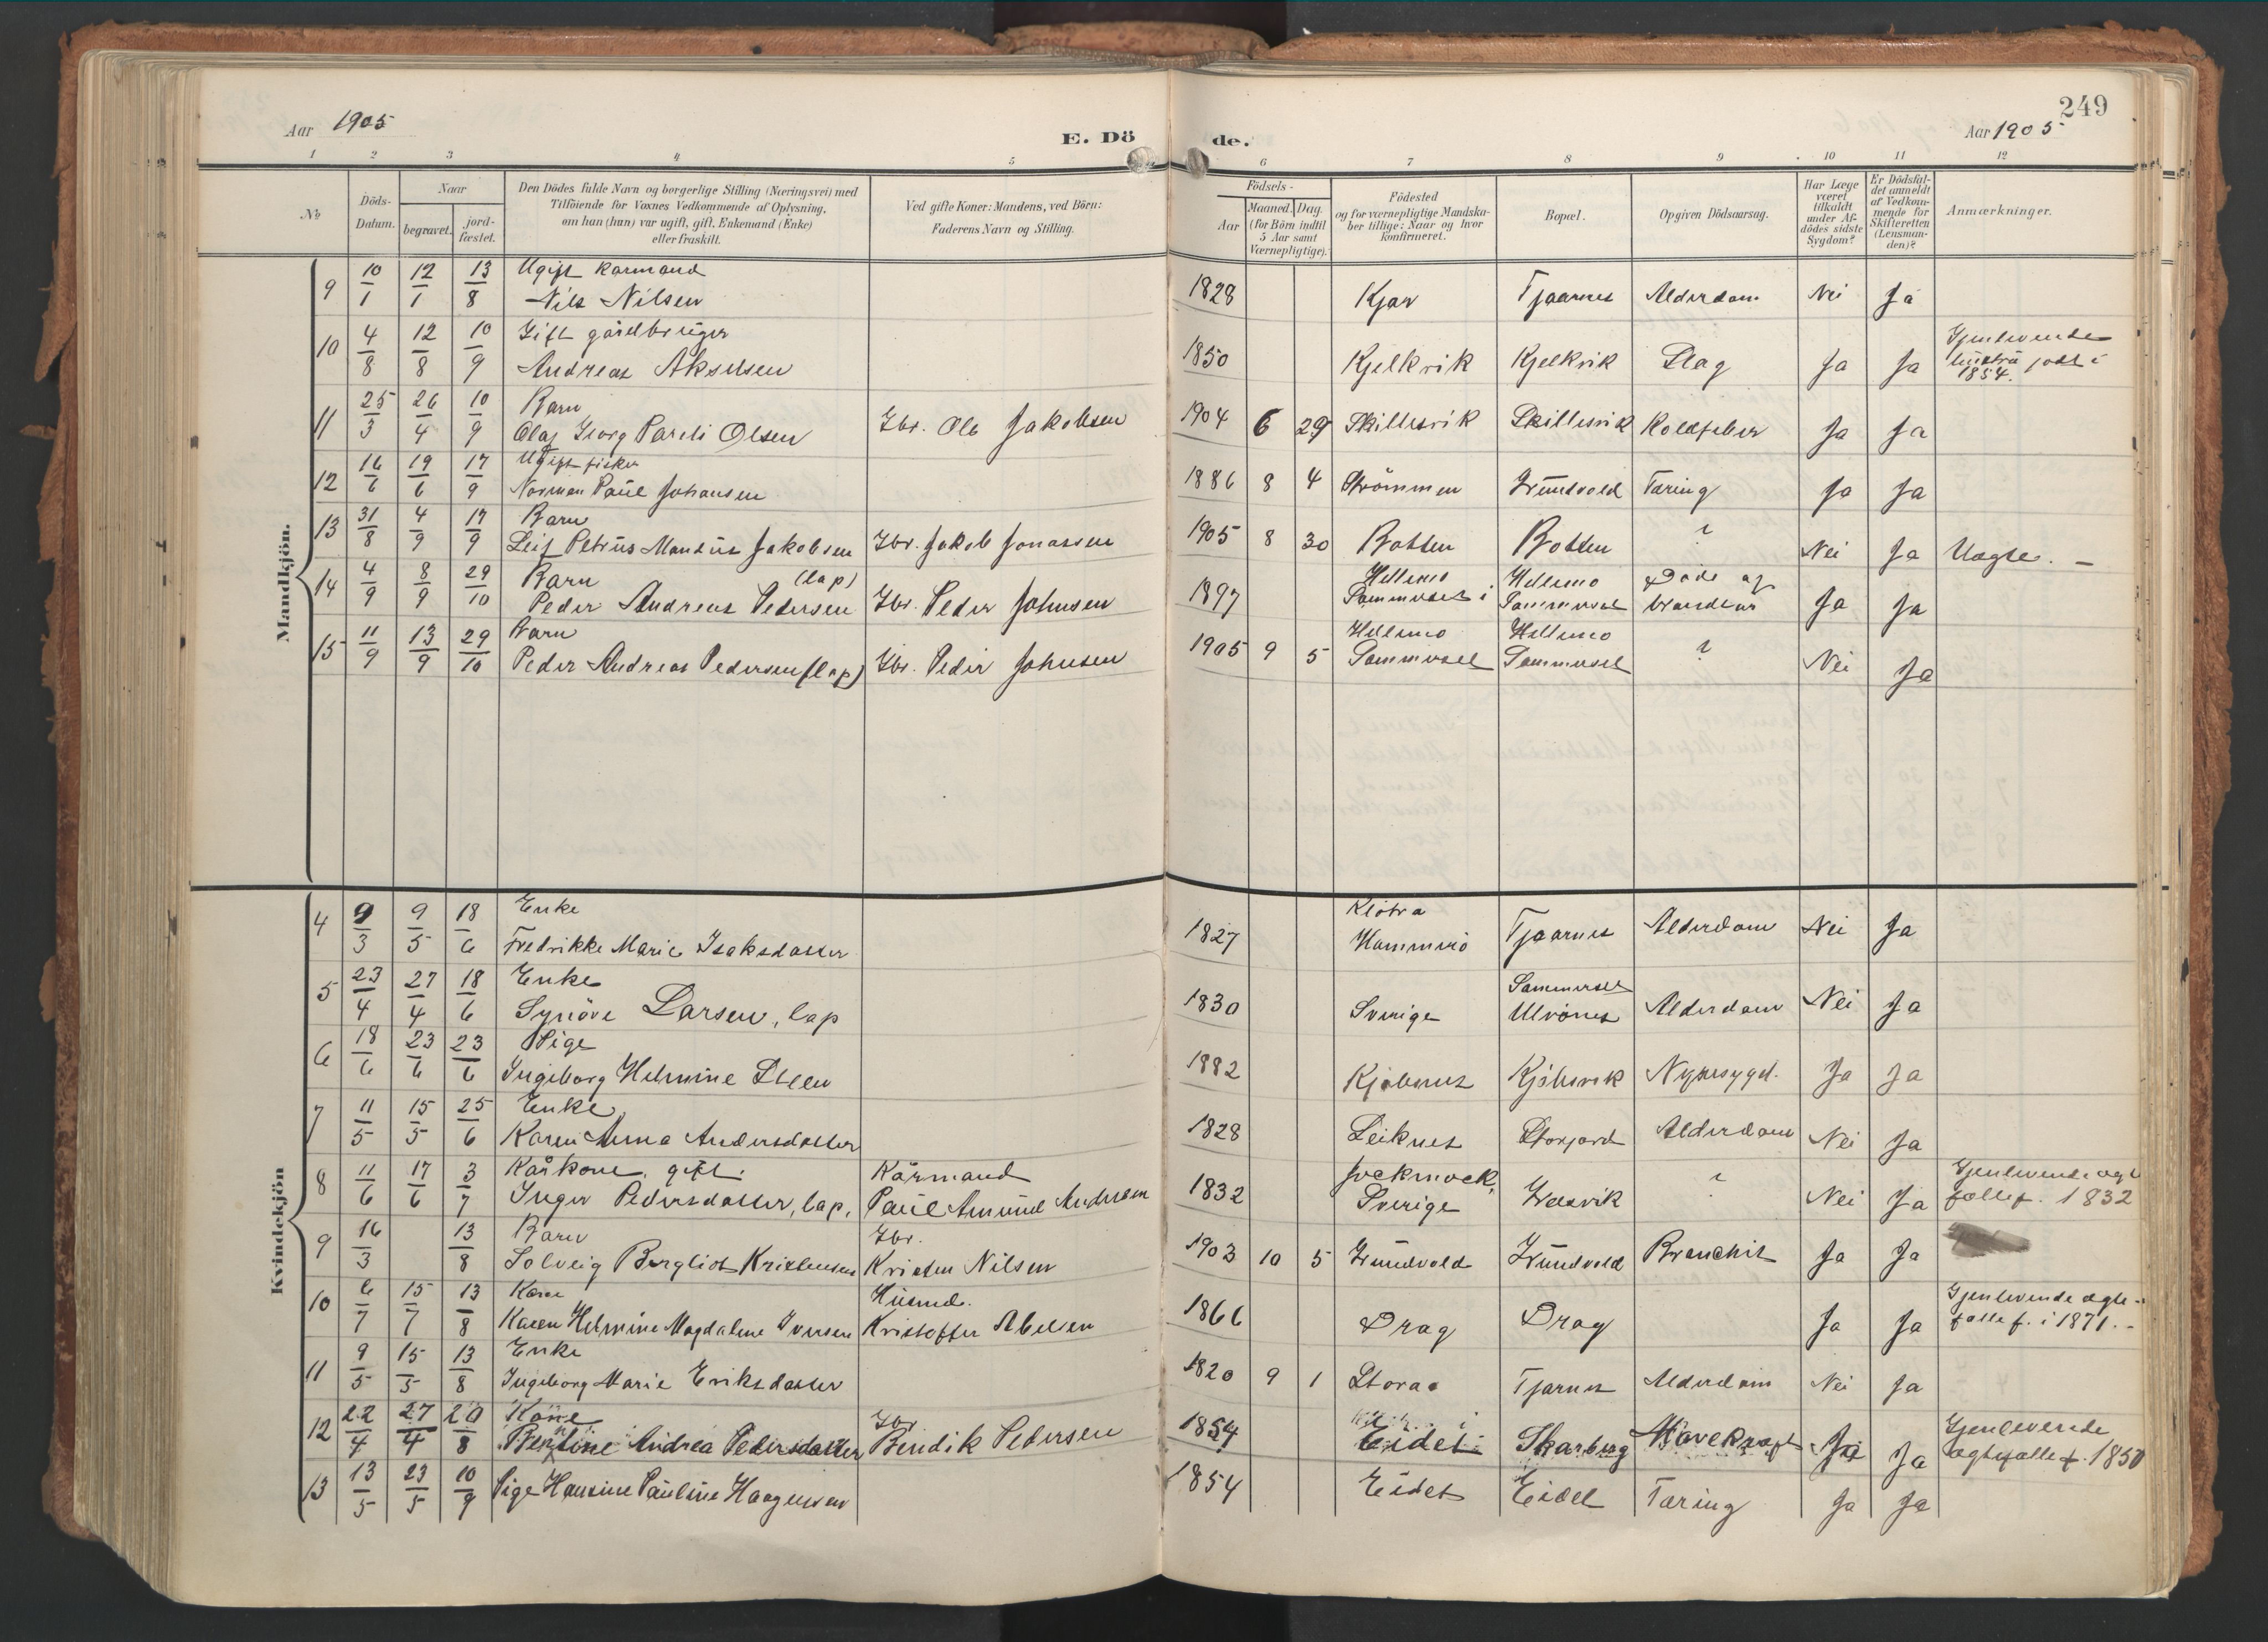 249
Aar 1905
E. Dö
de.
Aar 1905
1 2 3 4 5 6 7 8 9 10 11 12
No
Döds-Datum.
Naar
begravet.
jord-fæstet.
Den Dödes fulde Navn og borgerlige Stilling (Næringsvei) med
Tilföiende for Voxnes Vedkommende af Oplysning,
om han (hun) var ugift, gift, Enkemand (Enke)
eller fraskilt.
Ved gifte Koner: Mandens, ved Börn:
Faderens Navn og Stilling.
Födsels-
Aar
Maaned. Dag.
(for Börn indtil
5 Aar samt
Værnepligtige).
Födested
og for værnepligtige Mandska-
ber tillige: Naar og hvor
konfirmeret.
Bopæl.
Opgiven Dödsaarsag.
Har Læge
været
tilkaldt
under Af-
dödes sidste
Sygdom?
Er Dödsfal-
det anmeldt
af Vedkom-
mende for
Skifteretten
(Lensman-
den)?
Anmærkninger.
Mandkjön.
9 10/1 12/1 13/8 Ugift karmand
Nils Nilsen 1828 Kjær Tjaarnes Alderdom Nei Ja
10 4/8 12/8 10/9 Gift gårdbruger
Andreas Akselsen 1850 Kjelkvik Kjelkvik Slag Ja Ja Gjenlevende
hustru født i
1854.
11 25/3 26/4 10/9 Barn
Olaf Georg Pareli Olsen Gbr. Ole Jakobsen 1904 6 29 Skillesvik Skillesvik Koldfeber Ja Ja
12 16/6 19/6 17/9 Ugift fisker
Norman Paul Johansen 1886 8 4 Strömmen Grundvold Tæring Ja Ja
13 31/8 4/9 17/9 Barn
Leif Petrus Mandus Jakobsen Gbr. Jakob Jonassen 1905 8 30 Botten Botten ? Nei Ja Uægte. -
14 4/9 8/9 29/10 Barn (lap)
Peder Andreas Pedersen Gbr. Peder Johnsen 1897 Hellemo
Sommerset i Hellemo
Sommerset Døde af
brandsår Ja Ja
15 11/9 13/9 29/10 Barn
Peder Andreas Pedersen (lap) Gbr. Peder Johnsen 1905 9 5 Hellemo
Sommerset Hellemo
Sommerset ? Nei Ja
Kvindekjön
4 9/3 9/5 18/6 Enke
Fredrikke Marie Isaksdatter 1827 Kløtra
Hammerö Tjaarnes Alderdom Nei Ja
5 23/4 27/4 18/6 Enke
Synöve Larsen, lap 1830 Sverige Sommerset
Ulvönes Alderdom Nei Ja
6 18/6 23/6 23/6 Pige
Ingeborg Helmine Steen 1882 Kjöbsnes Kjöbsvik Nyresygd. Ja Ja
7 11/5 15/5 25/6 Enke
Karen Anna Andersdatter 1828 Leiknes Storjord Alderdom Nei Ja
8 11/6 17/6 3/7 Kårkone, gift.
Inger Pedersdatter, lap. Kårmand
Paul Amund Andersen 1832 Jockmock,
Sverige ? Nei Ja Gjenlevende ægte
fælle f. 1832
9 16/3 13/8 Barn
Solveig Bergliot Kristensen Gbr.
Kristen Nilsen 1903 10 5 Grundvold Grundvold Bronchit Ja Ja
10 6/7 15/7 13/8 Kone
Karen Helmine Magdalene Iversen Husmd.
Kristoffer Abelsen 1866 Drag Drag Ja Ja Gjenlevende ægte-
fælle f. i 1871. -
11 9/5 15/5 13/8 Enke
Ingeborg Marie Eriksdatter 1820 9 1 Storaa Tjarnes Alderdom Nei Ja
12 22/4 27/4 20/8 Kone
Andrea Pedersdatter Gbr
Bendik Pedersen 1854 Eidet Skarberg Mavekræft Ja Ja Gjenlevende
ægtefælle f. 1850
13 13/5 23/5 10/9 Pige Hansine Pauline Haagensen 1854 Eidet Eidet Tæring Ja Ja